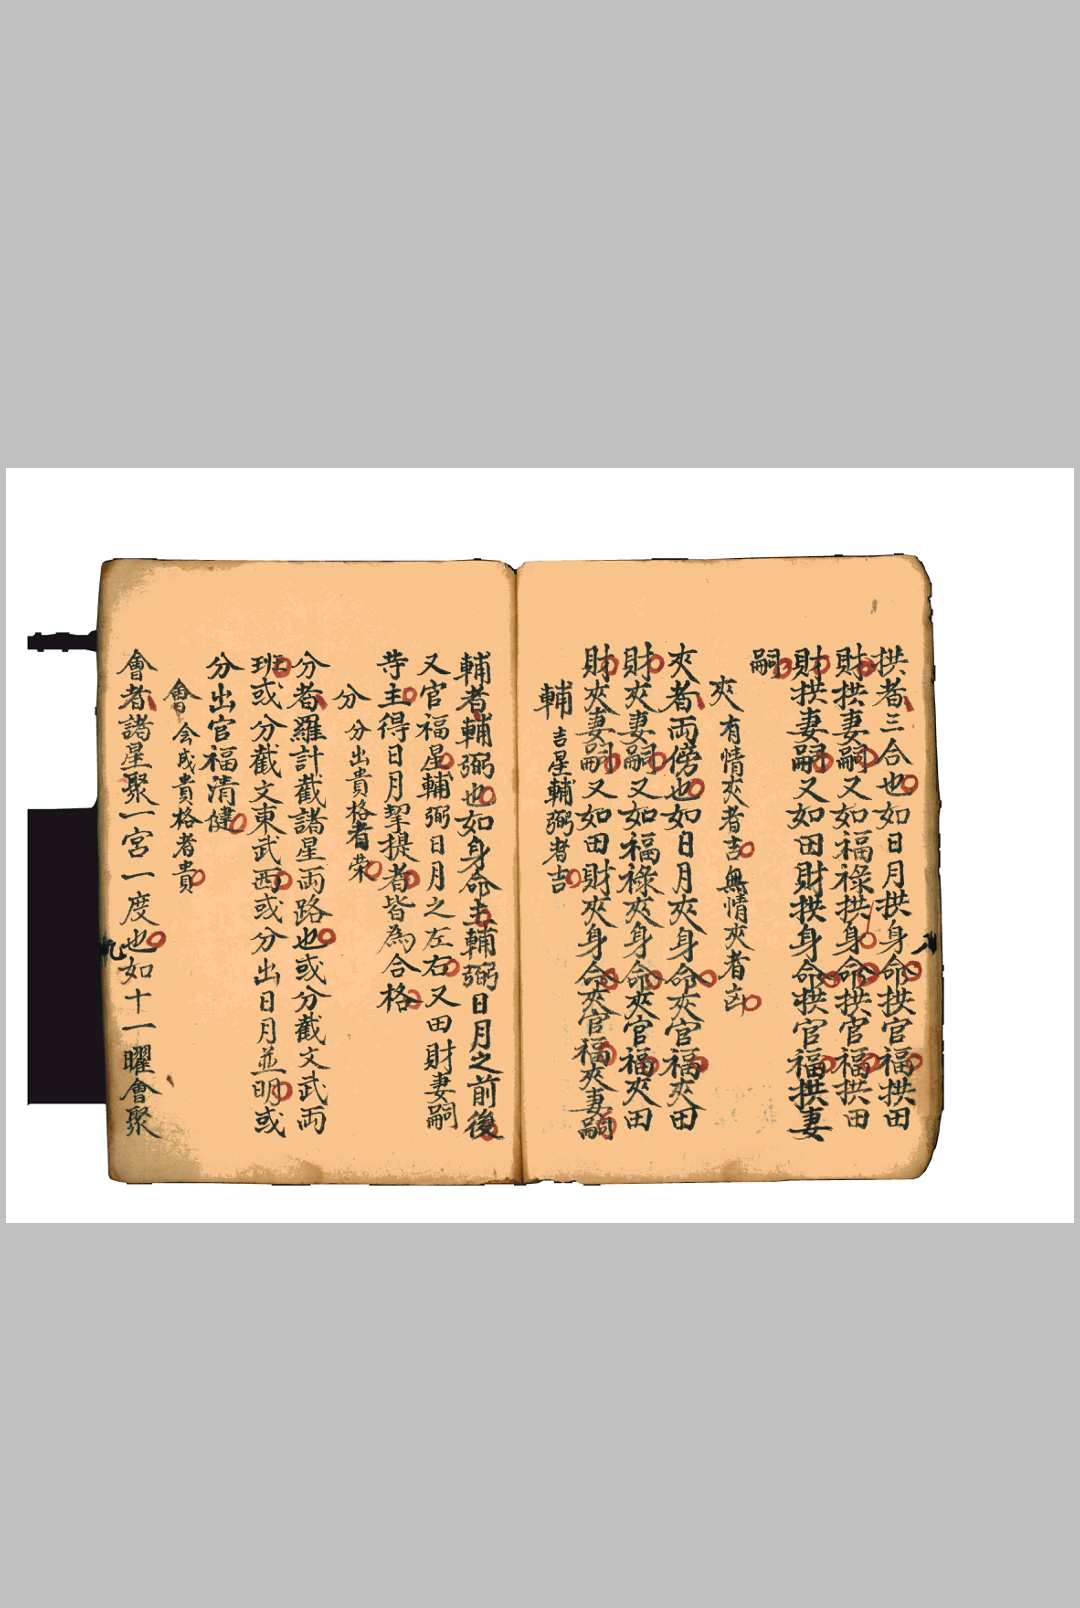 拱者三合也如日月拱身命拱官福拱田
財拱妻嗣又如福祿拱身命拱官福拱田
財拱妻嗣又如田財拱身命拱官福拱妻
嗣
夾 有情夾者吉無情夾者凶
夾者両傍也如日月夾身命夾官福夾田
財夾妻嗣又如福祿夾身命夾官福夾田
財夾妻嗣又如田財夾身命夾官福夾妻嗣
輔 吉星輔弼者吉
輔者輔弼也如身命主輔弼日月之前後
又官福星輔弼日月之左右又田財妻嗣
等主得日月挈提者皆為合格
分 分出貴格者荣
分者羅計截諸星両路也或分截文武両
班或分截文東武西或分出日月並明或
分出官福清健
會 会成貴格者貴
會者諸星聚一宮一度也如十一曜會聚